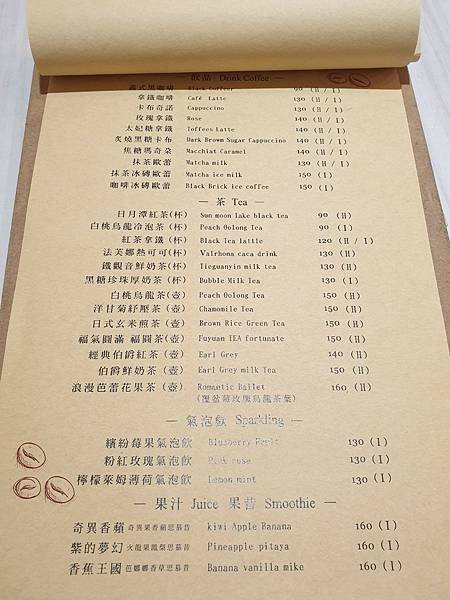 — 飲品 Drink Coffee —
義式黑咖啡 Black Coffeer 90 (H / I)
拿鐵咖啡 Café Latte 130 (H / I)
卡布奇諾 Cappuccino 130 (H / I)
玫瑰拿鐵 Rose 140 (H / I)
太妃糖拿鐵 Toffees Latte 140 (H / I)
炙燒黑糖卡布 Dark Browm Sugar Cappuccino 140 (H / I)
焦糖瑪奇朵 Macchiat Caramel 140 (H / I)
抹茶歐蕾 Matcha milk 130 (H / I)
抹茶冰磚歐蕾 Matcha ice milk 150 (I)
咖啡冰磚歐蕾 Black Brick ice coffee 150 (I)
— 茶 Tea —
日月潭紅茶(杯) Sun moon lake black tea 90 (H)
白桃烏龍冷泡茶(杯) Peach Oolong Tea 90 (I)
紅茶拿鐵(杯) Black Tea lattle 120 (H / I)
法芙娜熱可可(杯) Valrhona caca drink 130 (H)
鐵觀音鮮奶茶(杯) Tieguanyin milk tea 130 (H)
黑糖珍珠厚奶茶(杯) Bubble Milk Tea 130 (I)
白桃烏龍茶(壺) Peach Oolong Tea 150 (H)
洋甘菊紓壓茶(壺) Chamomile Tea 150 (H)
日式玄米煎茶(壺) Brown Rice Green Tea 150 (H)
福氣圓滿 福圓茶(壺) Fuyuan TEA fortunate 150 (H)
經典伯爵紅茶(壺) Earl Grey 140 (H)
伯爵鮮奶茶(壺) Earl Grey milk Tea 150 (H)
浪漫芭蕾花果茶(壺) Romantic Ballet 160 (H)
(覆盆莓玫瑰烏龍茶葉)
— 氣泡飲 Sparkling —
繽紛莓果氣泡飲 Blueberry Fruit 130 (I)
粉紅玫瑰氣泡飲 Pink rose 130 (I)
檸檬萊姆薄荷氣泡飲 Lemon mint 130 (I)
— 果汁 Juice 果昔 Smoothie —
奇異香蘋 奇異果香蘋思慕昔 kiwi Apple Banana 160 (I)
紫的夢幻 火龍果鳳梨思慕昔 Pineapple pitaya 160 (I)
香蕉王國 芭娜娜香草思慕昔 Banana vanilla mike 160 (I)